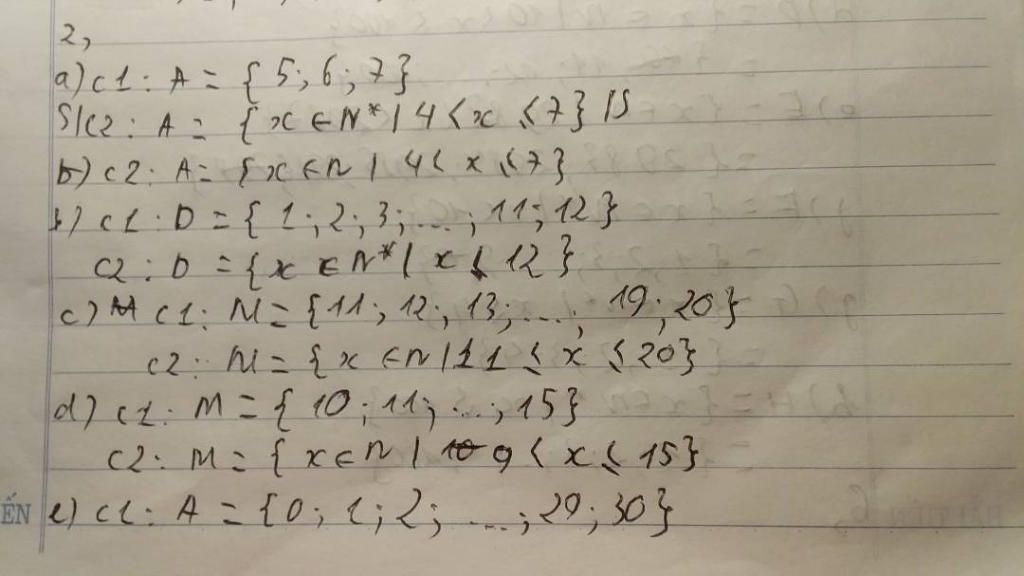 2,
a) C1: A = { 5; 6; 7}
S|C2: A = { x ∈ N* | 4 < x ≤ 7} |S
b) C2: A = { x ∈ N | 4 < x ≤ 7}
b) C1: D = { 1; 2; 3; ...; 11; 12}
C2: D = { x ∈ N* | x ≤ 12}
c) C1: M = { 11; 12; 13; ...; 19; 20}
C2: M = { x ∈ N | 11 ≤ x ≤ 20}
d) C1: M = { 10; 11; ...; 15}
C2: M = { x ∈ N | 9 < x ≤ 15}
ẾN e) C1: A = { 0; 1; 2; ...; 29; 30}